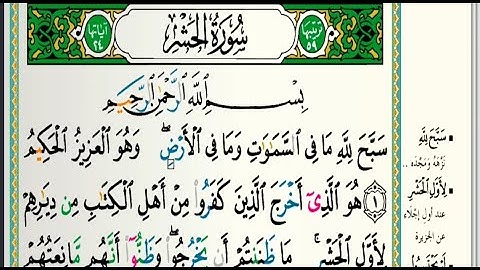 ترتيبها ٥٩ سُورَةُ الحَشْرِ آياتها ٢٤
بِسْمِ اللَّهِ الرَّحْمَٰنِ الرَّحِيمِ
سَبَّحَ لِلَّهِ مَا فِى السَّمَٰوَٰتِ وَمَا فِى الْأَرْضِ ۖ وَهُوَ الْعَزِيزُ الْحَكِيمُ
﴿١﴾ هُوَ الَّذِىٓ أَخْرَجَ الَّذِينَ كَفَرُوا۟ مِنْ أَهْلِ الْكِتَٰبِ مِن دِيَٰرِهِمْ
لِأَوَّلِ الْحَشْرِ ۚ مَا ظَنَنتُمْ أَن يَخْرُجُوا۟ ۖ وَظَنُّوٓا۟ أَنَّهُم مَّانِعَتُهُمْ
سَبَّحَ لِلَّهِ
نزّهه ومجّده ..
لِأَوَّلِ الْحَشْرِ
عند أول إجلاء
عن الجزيرة